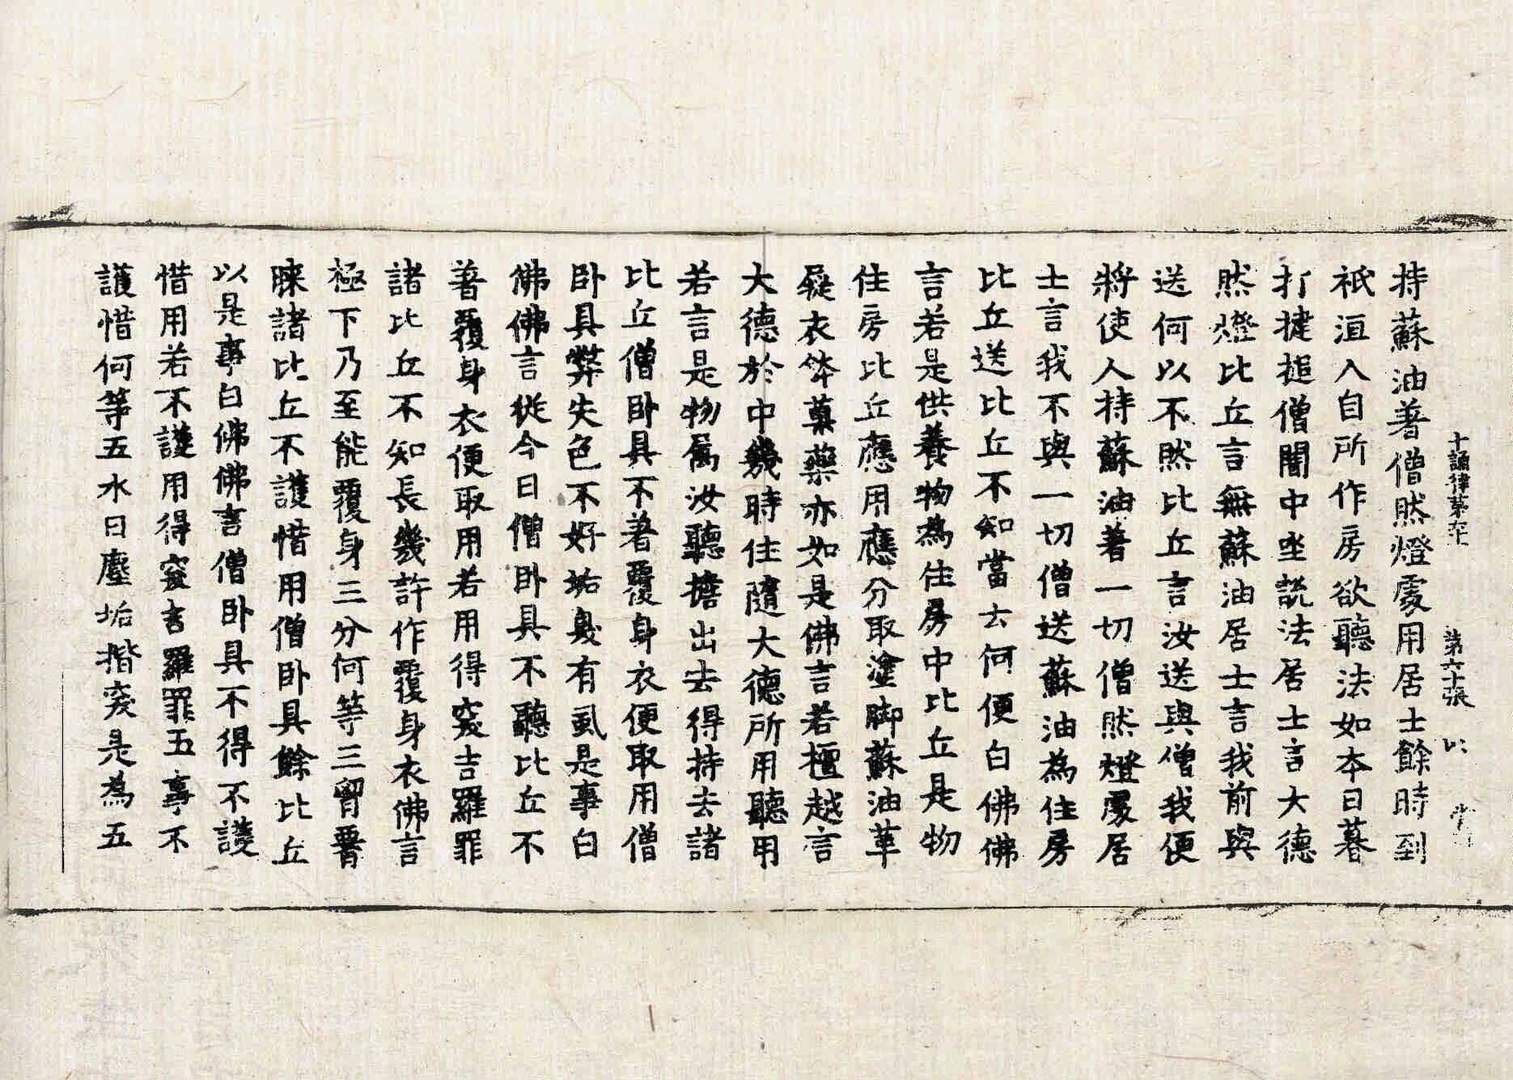 十誦律第六十 第六十張 以
持蘇油著僧然燈處用居士餘時到
祇洹入自所作房欲聽法如本日暮
打揵搥僧闇中坐說法居士言大德
然燈比丘言無蘇油居士言我前與
送何以不然比丘言汝送與僧我便
將使人持蘇油著一切僧然燈處居
士言我不與一切僧送蘇油為住房
比丘送比丘不知當云何便白佛佛
言若是供養物為住房中比丘是物
住房比丘應用應分取塗脚蘇油革
屣衣鉢藥亦如是佛言若檀越言
大德於中幾時住隨大德所用聽用
若言是物屬汝聽擔出去得持去諸
比丘僧卧具不著覆身衣便取用僧
卧具弊失色不好垢臭有虱是事白
佛佛言從今日僧卧具不聽比丘不
著覆身衣便取用若用得突吉羅罪
諸比丘不知長幾許作覆身衣佛言
極下乃至能覆身三分何等三胷䏶
諸比丘不護惜用僧卧具餘比丘
以是事白佛佛言僧卧具不得不護
惜用若不護用得突吉羅罪五事不
護惜何等五水日塵垢揩突是為五